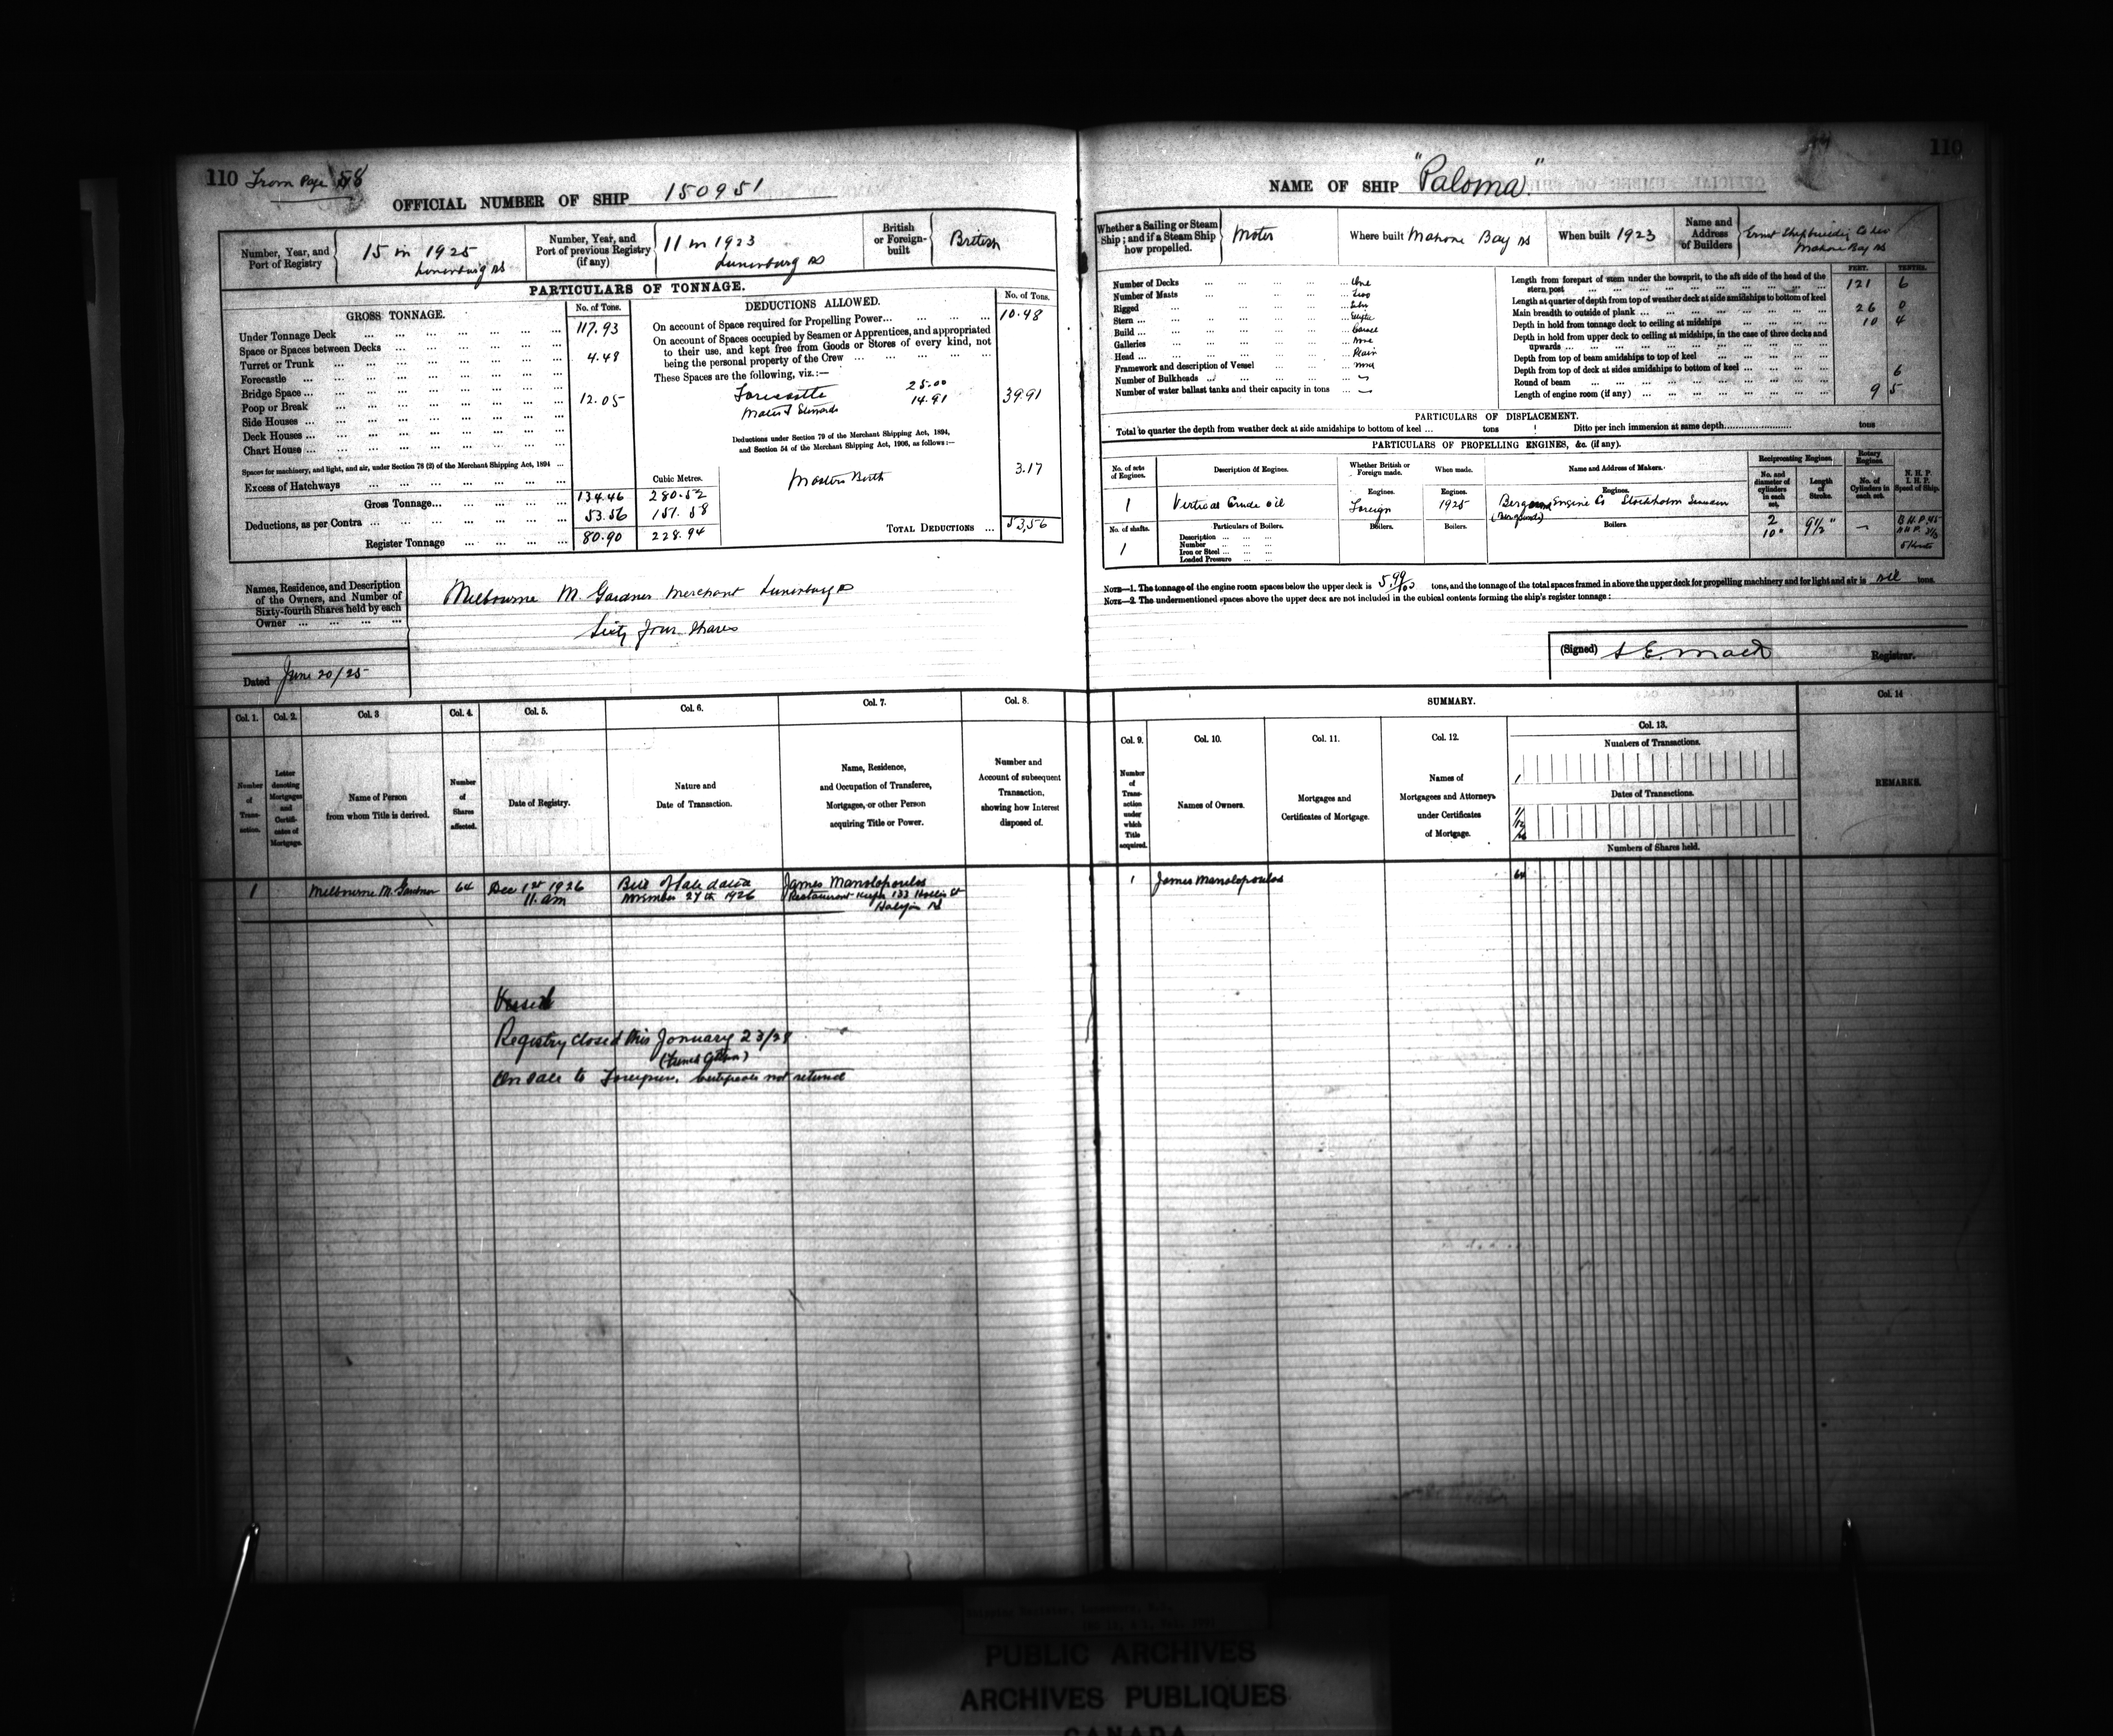 110 From Page 58
OFFICIAL NUMBER OF SHIP 150951
Number, Year, and
Port of Registry
15 in 1925
Lunenburg NS
Number, Year, and
Port of previous Registry
(if any)
11 in 1923
Lunenburg NS
British
or Foreign-
built
British
PARTICULARS OF TONNAGE.
GROSS TONNAGE.
No. of Tons.
Under Tonnage Deck ... 117.93
Space or Spaces between Decks
Turret or Trunk ... 4.48
Forecastle ...
Bridge Space ...
Poop or Break ... 12.05
Side Houses ...
Deck Houses ...
Chart House ...
Spaces for machinery, and light, and air, under Section 78 (2) of the Merchant Shipping Act, 1894 ...
Excess of Hatchways ...
Cubic Metres.
Gross Tonnage... 134.46 280.52
Deductions, as per Contra ... 53.56 151.58
Register Tonnage ... 80.90 228.94
DEDUCTIONS ALLOWED.
No. of Tons.
On account of Space required for Propelling Power... 10.48
On account of Spaces occupied by Seamen or Apprentices, and appropriated
to their use, and kept free from Goods or Stores of every kind, not
being the personal property of the Crew ...
These Spaces are the following, viz.:—
Forecastle 25.00
14.91 39.91
Deductions under Section 79 of the Merchant Shipping Act, 1894,
and Section 54 of the Merchant Shipping Act, 1906, as follows:—
Masters Berth 3.17
TOTAL DEDUCTIONS ... 53,56
Names, Residence, and Description
of the Owners, and Number of
Sixty-fourth Shares held by each
Owner ...
Melbourne M. Gardner Merchant Lunenburg NS
Sixty four Shares
Dated June 20/25
110
NAME OF SHIP "Paloma"
Whether a Sailing or Steam
Ship; and if a Steam Ship
how propelled.
Motor
Where built Mahone Bay NS
When built 1923
Name and
Address
of Builders
Ernst Shipbuilding Co Ltd
Mahone Bay NS
Number of Decks ... One
Number of Masts ... Two
Rigged ... Schr
Stern ...
Build ... Carvel
Galleries ... None
Head ... Plain
Framework and description of Vessel ... Wood
Number of Bulkheads ...
Number of water ballast tanks and their capacity in tons ...
FEET. TENTHS.
Length from forepart of stem under the bowsprit, to the aft side of the head of the
stern post ... 121 6
Length at quarter of depth from top of weather deck at side amidships to bottom of keel
Main breadth to outside of plank ... 26 0
Depth in hold from tonnage deck to ceiling at midships ... 10 4
Depth in hold from upper deck to ceiling at midships, in the case of three decks and
upwards ...
Depth from top of beam amidships to top of keel ...
Depth from top of deck at sides amidships to bottom of keel ...
Round of beam ... 6
Length of engine room (if any) ... 9 5
PARTICULARS OF DISPLACEMENT.
Total to quarter the depth from weather deck at side amidships to bottom of keel ... tons Ditto per inch immersion at same depth... tons
PARTICULARS OF PROPELLING ENGINES, &c. (if any).
No. of sets
of Engines.
Description of Engines.
Whether British or
Foreign made.
When made.
Name and Address of Makers.
Reciprocating Engines.
Rotary
Engines.
No. and
diameter of
cylinders
in each
set.
Length
of
Stroke.
No. of
Cylinders in
each set.
N. H. P.
I. H. P.
Speed of Ship.
Engines. Engines. Engines.
1 Vertical Crude oil Foreign 1925 Engine Co Stockholm Sweden
No. of shafts. Particulars of Boilers. Boilers. Boilers. Boilers.
1
Description ...
Number ...
Iron or Steel ...
Loaded Pressure ...
2
10"
9½"
B H. P. 45
5 Knots
NOTE—1. The tonnage of the engine room spaces below the upper deck is 5.99/100 tons, and the tonnage of the total spaces framed in above the upper deck for propelling machinery and for light and air is nil tons.
NOTE—2. The undermentioned spaces above the upper deck are not included in the cubical contents forming the ship's register tonnage:
(Signed) S E. Mack Registrar.
Col. 1. Col. 2. Col. 3 Col. 4. Col. 5. Col. 6. Col. 7. Col. 8.
Number
of
Trans-
action.
Letter
denoting
Mortgages
and
Certifi-
cates of
Mortgage.
Name of Person
from whom Title is derived.
Number
of
Shares
affected.
Date of Registry.
Nature and
Date of Transaction.
Name, Residence,
and Occupation of Transferee,
Mortgagee, or other Person
acquiring Title or Power.
Number and
Account of subsequent
Transaction,
showing how Interest
disposed of.
SUMMARY.
Col. 9. Col. 10. Col. 11. Col. 12. Col. 13. Col. 14
Number
of
Trans-
action
under
which
Title
acquired.
Names of Owners.
Mortgages and
Certificates of Mortgage.
Names of
Mortgagees and Attorneys
under Certificates
of Mortgage.
Numbers of Transactions.
1
Dates of Transactions.
1/12/26
Numbers of Shares held.
REMARKS.
1 Melbourne M. Gardner 64 Dec 1st 1926
11. am
Bill of Sale dated
November 27th 1926
James Manolopoulos
Restaurant Keeper 133 Hollis St
Halifax NS
1 James Manolopoulos 64
Vessel
Registry closed this January 23/28
On sale to Foreigners. Certificate not returned
PUBLIC ARCHIVES
ARCHIVES PUBLIQUES
CANADA